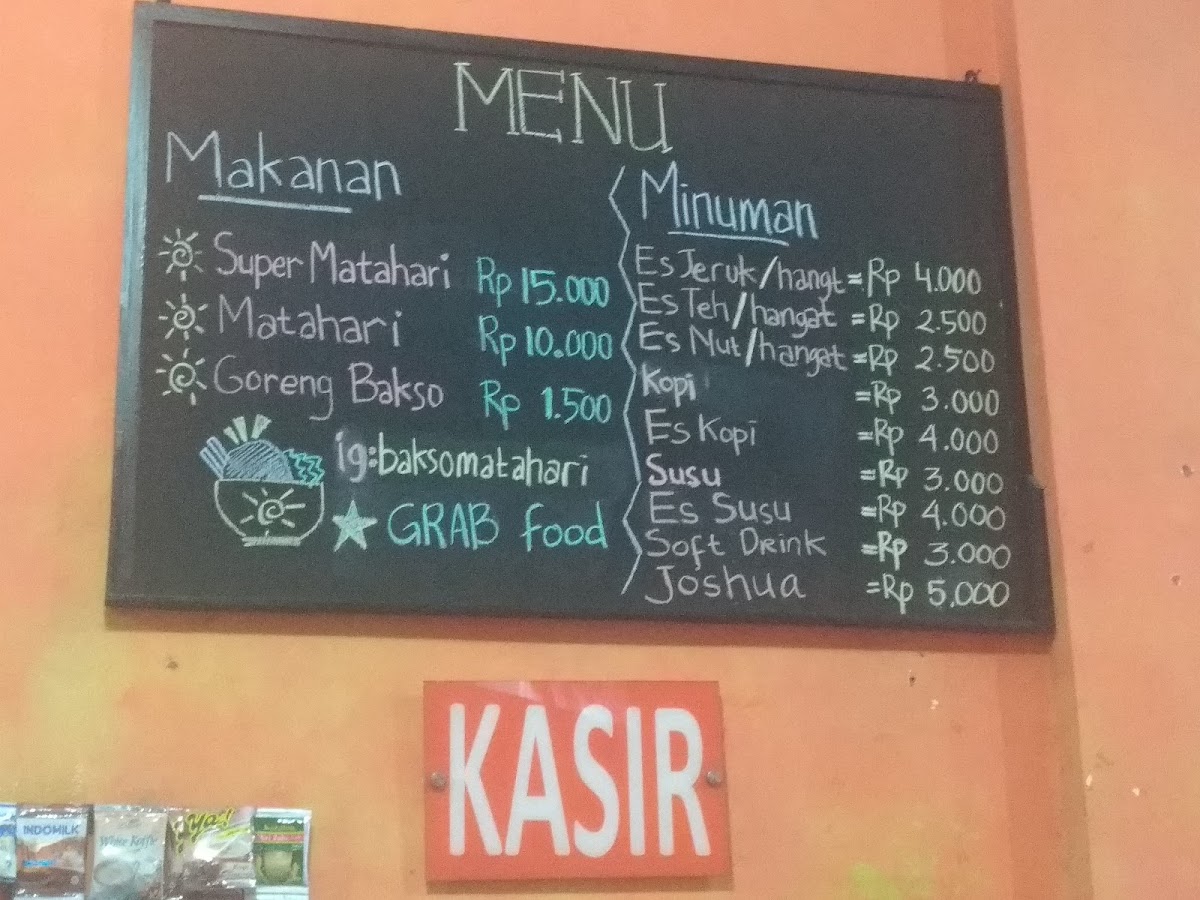 MENU
Makanan
Super Matahari Rp 15.000
Matahari Rp 10.000
Goreng Bakso Rp 1.500
ig:baksomatahari
GRAB food
Minuman
Es Jeruk/hangt = Rp 4.000
Es Teh/hangat = Rp 2.500
Es Nut/hangat = Rp 2.500
Kopi = Rp 3.000
Es Kopi = Rp 4.000
Susu = Rp 3.000
Es Susu = Rp 4.000
Soft Drink = Rp 3.000
Joshua = Rp 5,000
KASIR
INDOMILK
White Koffie
Ya!